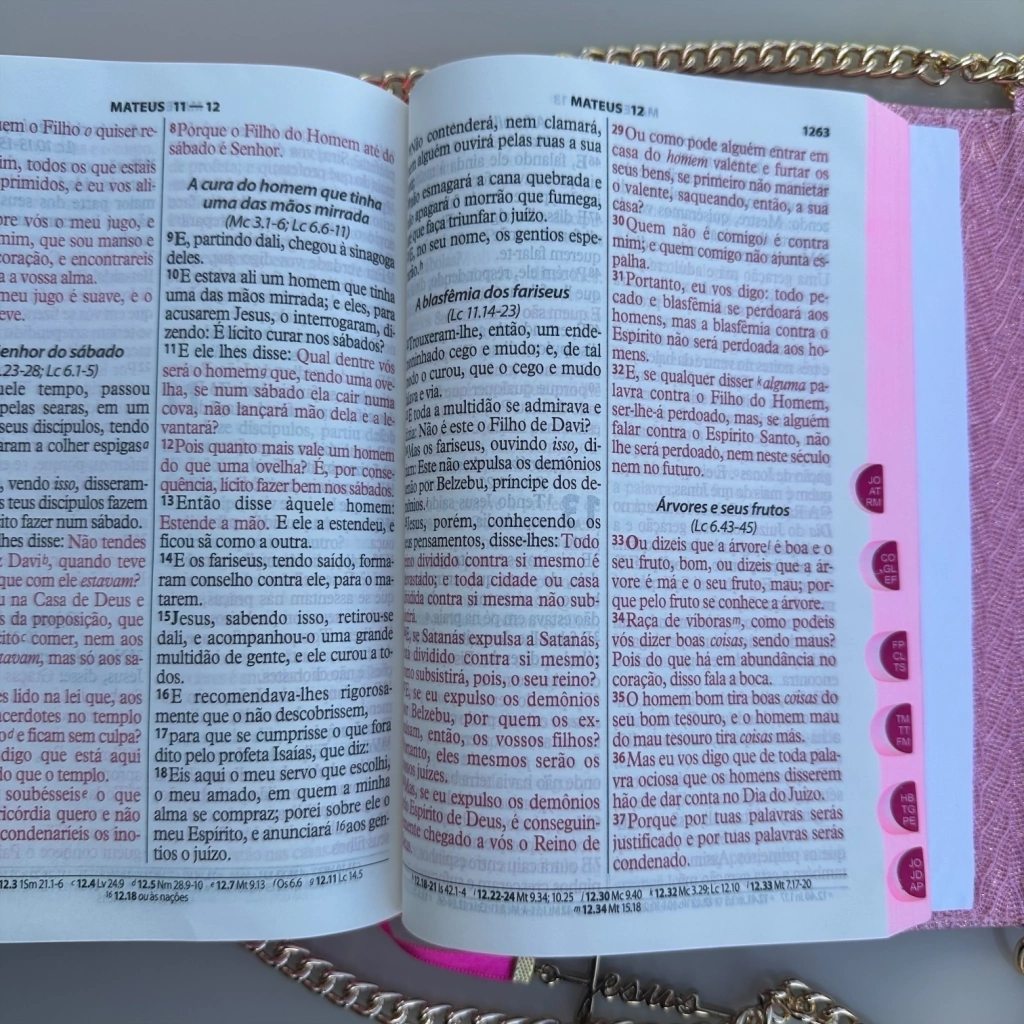 MATEUS 11—12
em o Filho o quiser re-
im, todos os que estais
primidos, e eu vos ali-
re vós o meu jugo, e
mim, que sou manso e
coração, e encontrareis
a a vossa alma.
meu jugo é suave, e o
eve.
enhor do sábado
.23-28; Lc 6.1-5)
uele tempo, passou
pelas searas, em um
seus discípulos, tendo
aram a colher espigas a
, vendo isso, disseram-
s teus discípulos fazem
ito fazer num sábado.
lhes disse: Não tendes
z Davi b, quando teve
que com ele estavam?
u na Casa de Deus e
s da proposição, que
ito c comer, nem aos
tavam, mas só aos sa-
es lido na lei que, aos
acerdotes no templo
o d e ficam sem culpa?
digo que está aqui
do que o templo.
soubésseis e o que
ricórdia quero e não
condenaríeis os ino-
8Porque o Filho do Homem até do
sábado é Senhor.
A cura do homem que tinha
uma das mãos mirrada
(Mc 3.1-6; Lc 6.6-11)
9E, partindo dali, chegou à sinagoga
deles.
10E estava ali um homem que tinha
uma das mãos mirrada; e eles, para
acusarem Jesus, o interrogaram, di-
zendo: É lícito curar nos sábados?
11E ele lhes disse: Qual dentre vós
será o homem g que, tendo uma ove-
lha, se num sábado ela cair numa
cova, não lançará mão dela e a le-
vantará?
12Pois quanto mais vale um homem
do que uma ovelha? É, por conse-
quência, lícito fazer bem nos sábados.
13Então disse àquele homem:
Estende a mão. E ele a estendeu, e
ficou sã como a outra.
14E os fariseus, tendo saído, forma-
ram conselho contra ele, para o ma-
tarem.
15Jesus, sabendo isso, retirou-se
dali, e acompanhou-o uma grande
multidão de gente, e ele curou a to-
dos.
16E recomendava-lhes rigorosa-
mente que o não descobrissem,
17para que se cumprisse o que fora
dito pelo profeta Isaías, que diz:
18Eis aqui o meu servo que escolhi,
o meu amado, em quem a minha
alma se compraz; porei sobre ele o
meu Espírito, e anunciará 16aos gen-
tios o juízo.
12.3 1Sm 21.1-6 c 12.4 Lv 24.9 d 12.5 Nm 28.9-10 e 12.7 Mt 9.13 f Os 6.6 g 12.11 Lc 14.5
16 12.18 ou às nações
MATEUS 12
1263
Não contenderá, nem clamará,
alguém ouvirá pelas ruas a sua
esmagará a cana quebrada e
apagará o morrão que fumega,
que faça triunfar o juízo.
E, no seu nome, os gentios espe-
A blasfêmia dos fariseus
(Lc 11.14-23)
Trouxeram-lhe, então, um ende-
ninhado cego e mudo; e, de tal
o curou, que o cego e mudo
e via.
E toda a multidão se admirava e
Não é este o Filho de Davi?
Mas os fariseus, ouvindo isso, di-
Este não expulsa os demônios
por Belzebu, príncipe dos de-
Jesus, porém, conhecendo os
pensamentos, disse-lhes: Todo
dividido contra si mesmo é
astado; e toda cidade ou casa
dida contra si mesma não sub-
E, se Satanás expulsa a Satanás,
dividido contra si mesmo;
subsistirá, pois, o seu reino?
se eu expulso os demônios
Belzebu, por quem os ex-
então, os vossos filhos?
anto, eles mesmos serão os
juízes.
Mas, se eu expulso os demônios
Espírito de Deus, é conseguin-
chegado a vós o Reino de
29Ou como pode alguém entrar em
casa do homem valente e furtar os
seus bens, se primeiro não manietar
o valente, saqueando, então, a sua
casa?
30Quem não é comigo l é contra
mim; e quem comigo não ajunta es-
palha.
31Portanto, eu vos digo: todo pe-
cado e blasfêmia se perdoará aos
homens, mas a blasfêmia contra o
Espírito não será perdoada aos ho-
mens.
32E, se qualquer disser k alguma pa-
lavra contra o Filho do Homem,
ser-lhe-á perdoado, mas, se alguém
falar contra o Espírito Santo, não
lhe será perdoado, nem neste século
nem no futuro.
Árvores e seus frutos
(Lc 6.43-45)
33Ou dizeis que a árvore l é boa e o
seu fruto, bom, ou dizeis que a ár-
vore é má e o seu fruto, mau; por-
que pelo fruto se conhece a árvore.
34Raça de víboras m, como podeis
vós dizer boas coisas, sendo maus?
Pois do que há em abundância no
coração, disso fala a boca.
35O homem bom tira boas coisas do
seu bom tesouro, e o homem mau
do mau tesouro tira coisas más.
36Mas eu vos digo que de toda pala-
vra ociosa que os homens disserem
hão de dar conta no Dia do Juízo.
37Porque por tuas palavras serás
justificado e por tuas palavras serás
condenado.
12.18-21 Is 42.1-4 i 12.22-24 Mt 9.34; 10.25 l 12.30 Mc 9.40 k 12.32 Mc 3.29; Lc 12.10 l 12.33 Mt 7.17-20
m 12.34 Mt 15.18
JO
AT
RM
CO
GL
EF
FP
CL
TS
TM
TT
FM
HB
TG
PE
JO
JD
AP
Jesus